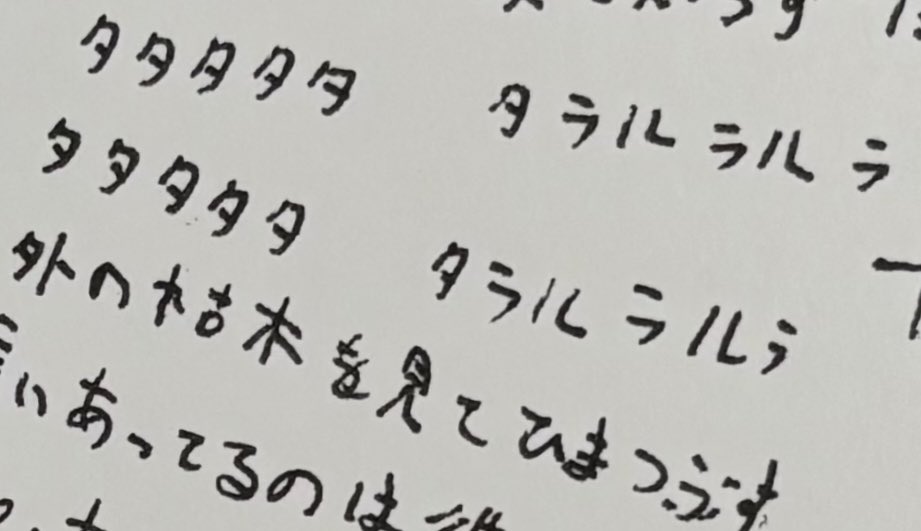 タタタタタ タラルラルラ
タタタタタ タラルラルラ
外の枯木を見てひまつぶす
言いあってるのは